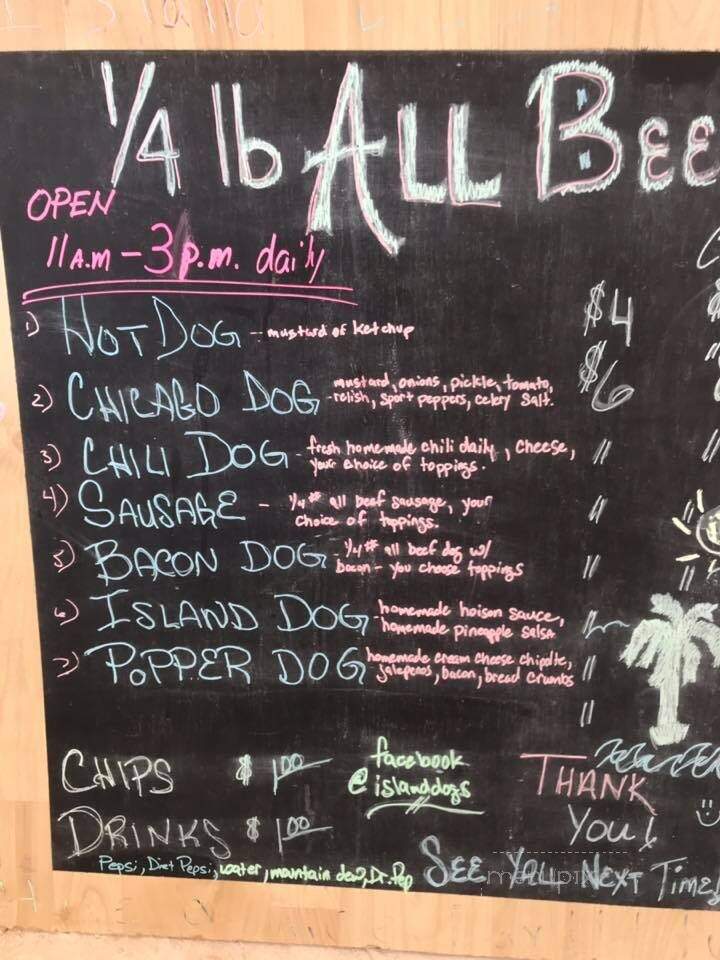 1/4 lb ALL BEE
OPEN
11 A.M - 3 p.m. daily
1) HOT DOG - mustard or ketchup $4
2) CHICAGO DOG - mustard, onions, pickle, tomato, $6
relish, sport peppers, celery salt.
3) CHILI DOG - fresh homemade chili daily, cheese, "
your choice of toppings.
4) SAUSAGE - 1/4# all beef sausage, your "
choice of toppings.
5) BACON DOG - 1/4# all beef dog w/ "
bacon - you choose toppings
6) ISLAND DOG - homemade hoison sauce, "
homemade pineapple salsa
7) POPPER DOG homemade cream cheese chipolte, "
jalepenos, bacon, bread crumbs "
CHIPS $1.00
DRINKS $1.00
Pepsi, Diet Pepsi, water, mountain dew, Dr. Pep
facebook
@islanddogs
THANK
YOU!
SEE YOU NEXT TIME!